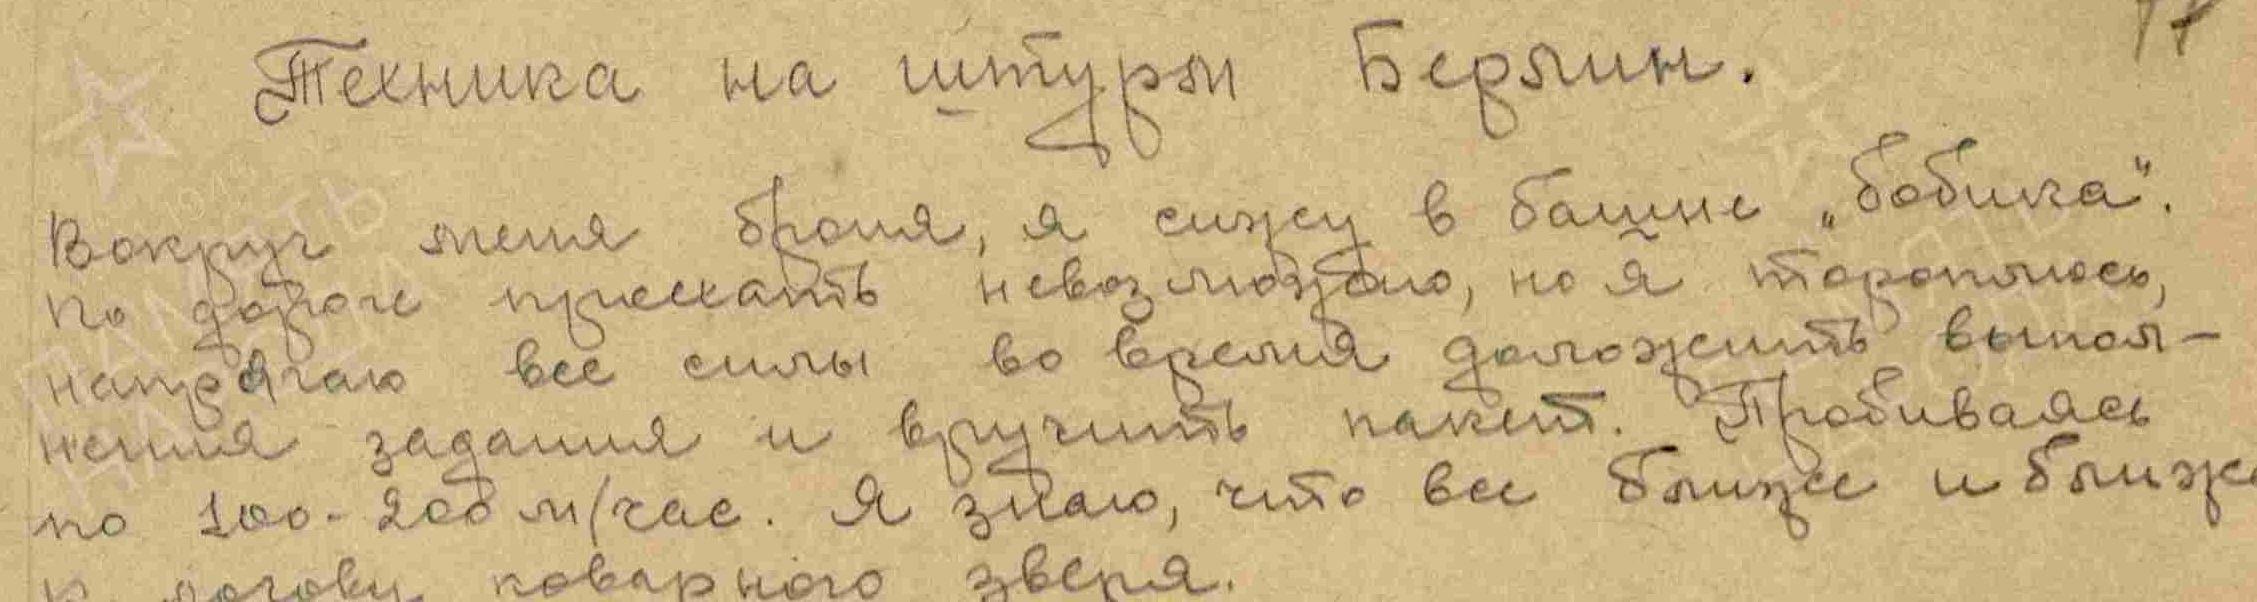 17
Техника на штурм Берлин.
Вокруг меня броня, я сижу в башне „бобика".
По дороге приехать невозможно, но я тороплюсь,
напрягаю все силы во время доложить выпол-
нения задания и вручить пакет. Пробиваясь
по 100-200 м/час. Я знаю, что все ближе и ближе
к логову коварного зверя.